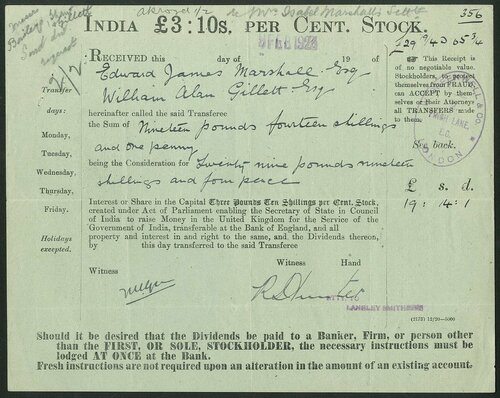 Isabel Marshall
356
INDIA £3:10s. PER CENT. STOCK.
£29
RECEIVED this day of 19 of
This Receipt is
of no negotiable value.
Stockholders, to protect
themselves from FRAUD,
can ACCEPT by them-
selves or their Attorneys
all TRANSFERS made
to them.
See back.
Edward James Marshall Esq
William Alan Gillett Esq
Transfer
days:
Monday,
Tuesday,
Wednesday,
Thursday,
Friday.
Holidays
excepted.
hereinafter called the said Transferee
the Sum of Nineteen pounds fourteen shillings
and one penny
being the Consideration for Twenty nine pounds nineteen
shillings and four pence
£ s. d.
19 : 14 : 1
Interest or Share in the Capital Three Pounds Ten Shillings per Cent. Stock,
created under Act of Parliament enabling the Secretary of State in Council
of India to raise Money in the United Kingdom for the Service of the
Government of India, transferable at the Bank of England, and all
property and interest in and right to the same, and the Dividends thereon,
by this day transferred to the said Transferee
Witness Hand
Witness
LANGLEY SMITH
(2173) 12/20—5000
Should it be desired that the Dividends be paid to a Banker, Firm, or person other
than the FIRST, OR SOLE, STOCKHOLDER, the necessary instructions must be
lodged AT ONCE at the Bank.
Fresh instructions are not required upon an alteration in the amount of an existing account.